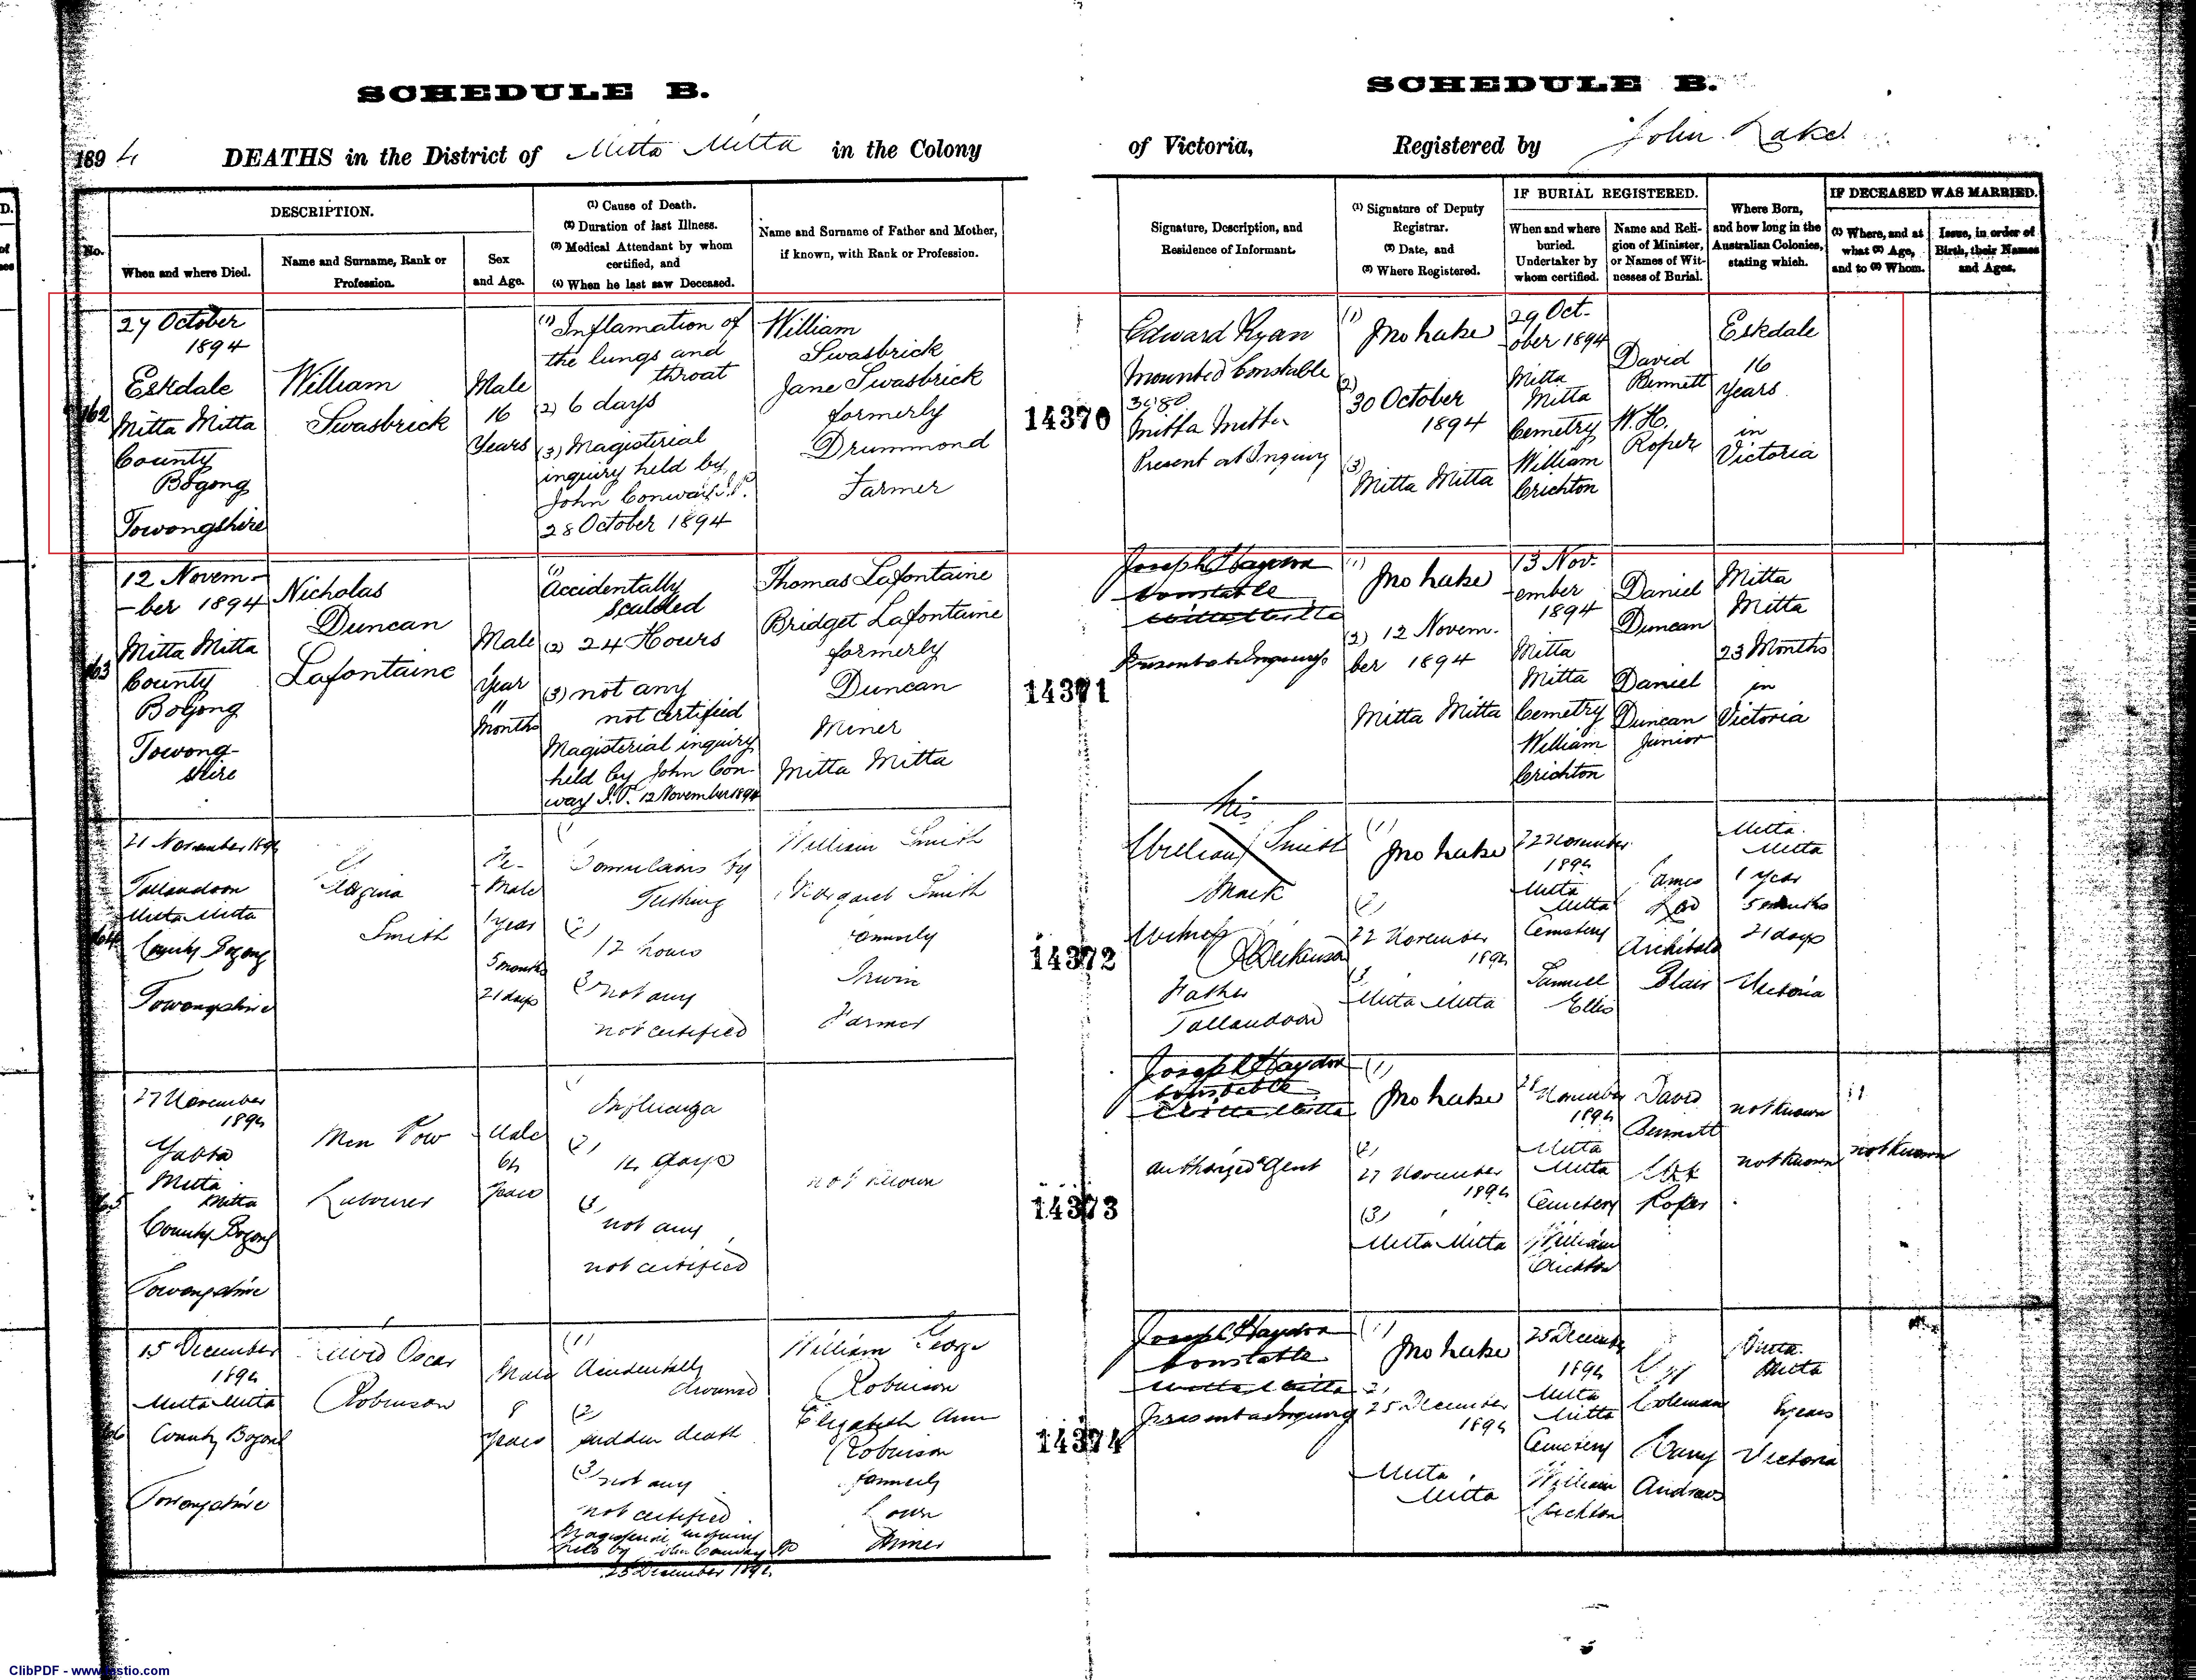 SCHEDULE B.
1894 DEATHS in the District of Mitta Mitta in the Colony
No.
DESCRIPTION.
When and where Died.
Name and Surname, Rank or
Profession.
Sex
and Age.
(1) Cause of Death.
(2) Duration of last Illness.
(3) Medical Attendant by whom
certified, and
(4) When he last saw Deceased.
Name and Surname of Father and Mother,
if known, with Rank or Profession.
SCHEDULE B.
of Victoria, Registered by John Lake
Signature, Description, and
Residence of Informant.
(1) Signature of Deputy
Registrar.
(2) Date, and
(3) Where Registered.
IF BURIAL REGISTERED.
When and where
buried.
Undertaker by
whom certified.
Name and Reli-
gion of Minister,
or Names of Wit-
nesses of Burial.
Where Born,
and how long in the
Australian Colonies,
stating which.
IF DECEASED WAS MARRIED.
(1) Where, and at
what (2) Age,
and to (3) Whom.
Issue, in order of
Birth, their Names
and Ages.
162
27 October
1894
Eskdale
Mitta Mitta
County
Bogong
Towongshire
William
Swasbrick
Male
16
Years
(1) Inflamation of
the lungs and
throat
(2) 6 days
(3) Magisterial
inquiry held by
John Conway J.P.
28 October 1894
William
Swasbrick
Jane Swasbrick
formerly
Drummond
Farmer
14370
Edward Ryan
Mounted Constable
3080
Mitta Mitta
Present at Inquiry
(1) Jno Lake
(2)
30 October
1894
(3)
Mitta Mitta
29 Oct-
ober 1894
Mitta
Mitta
Cemetry
William
Crichton
David
Bennett
W. H.
Roper
Eskdale
16
Years
in
Victoria
163
12 Novem-
-ber 1894
Mitta Mitta
County
Bogong
Towong-
shire
Nicholas
Duncan
Lafontaine
Male
1 Year
11
Months
(1)
Accidentally
scalded
(2) 24 Hours
(3) not any
not certified
Magisterial inquiry
held by John Con-
way J.P. 12 November 1894
Thomas Lafontaine
Bridget Lafontaine
formerly
Duncan
Miner
Mitta Mitta
14371
Joseph Haydon
Constable
Mitta Mitta
Present at Inquiry
(1) Jno Lake
(2) 12 Novem-
ber 1894
Mitta Mitta
13 Nov-
ember
1894
Mitta
Mitta
Cemetry
William
Crichton
Daniel
Duncan
Daniel
Duncan
Junior
Mitta
Mitta
23 Months
in
Victoria
164
21 November 1894
Tallandoon
Mitta Mitta
County Bogong
Towongshire
Smith
Fe-
Male
1 year
5 months
21 days
(1)
Convulsions by
Teething
(2)
12 hours
(3) not any
not certified
William Smith
Margaret Smith
formerly
Irwin
Farmer
14372
his
William Smith
Mark
Witness
Father
Tallandoon
(1)
Jno Lake
(2)
22 November
1894
(3)
Mitta Mitta
22 November
1894
Mitta
Mitta
Cemetery
Samuel
Ellis
James
Archibald
Blair
Mitta
Mitta
1 year
5 months
21 days
Victoria
165
27 November
1894
Yabba
Mitta
Mitta
County Bogong
Towongshire
Men Pow
Labourer
Male
64
years
(1)
Influenza
(2)
14 days
(3)
not any
not certified
not known
14373
Joseph Haydon
Constable
Mitta Mitta
authorized agent
(1)
Jno Lake
(2)
27 November
1894
(3)
Mitta Mitta
November
1894
Mitta
Mitta
Cemetery
William
Crichton
David
Bennett
Roper
not known
not known
not known
166
15 December
1894
Mitta Mitta
County Bogong
Towongshire
Oscar
Robinson
Male
8
years
(1)
Accidentally
drowned
(2)
sudden death
(3) not any
not certified
Magisterial inquiry
held by John Conway JP
25 December 1894
William George
Robinson
Elizabeth Ann
Robinson
formerly
Miner
14374
Joseph Haydon
Constable
Mitta Mitta
present at Inquiry
(1)
Jno Lake
(2)
25 December
1894
Mitta
Mitta
25 December
1894
Mitta
Mitta
Cemetery
William
Crichton
Coleman
Harry
Andrews
Mitta
Mitta
8 years
Victoria
ClibPDF - www.fastio.com